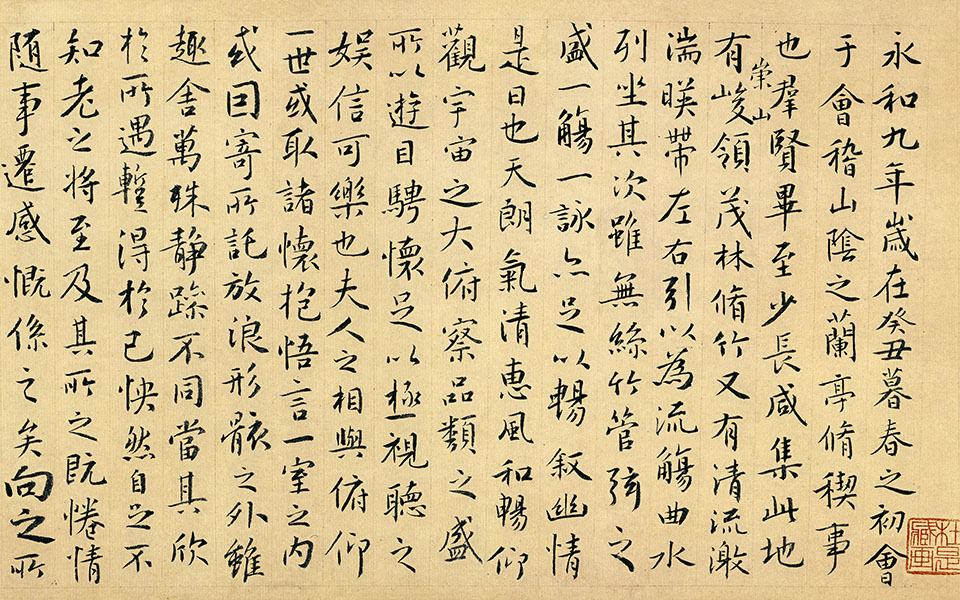 永和九年歲在癸丑暮春之初會
于會稽山陰之蘭亭脩稧事
也羣賢畢至少長咸集此地
有崇山峻領茂林脩竹又有清流激
湍暎帶左右引以為流觴曲水
列坐其次雖無絲竹管弦之
盛一觴一詠亦足以暢叙幽情
是日也天朗氣清惠風和暢仰
觀宇宙之大俯察品類之盛
所以遊目騁懷足以極視聽之
娛信可樂也夫人之相與俯仰
一世或取諸懷抱悟言一室之內
或因寄所託放浪形骸之外雖
趣舍萬殊靜躁不同當其欣
於所遇蹔得於己怏然自足不
知老之將至及其所之既惓情
随事遷感慨係之矣向之所